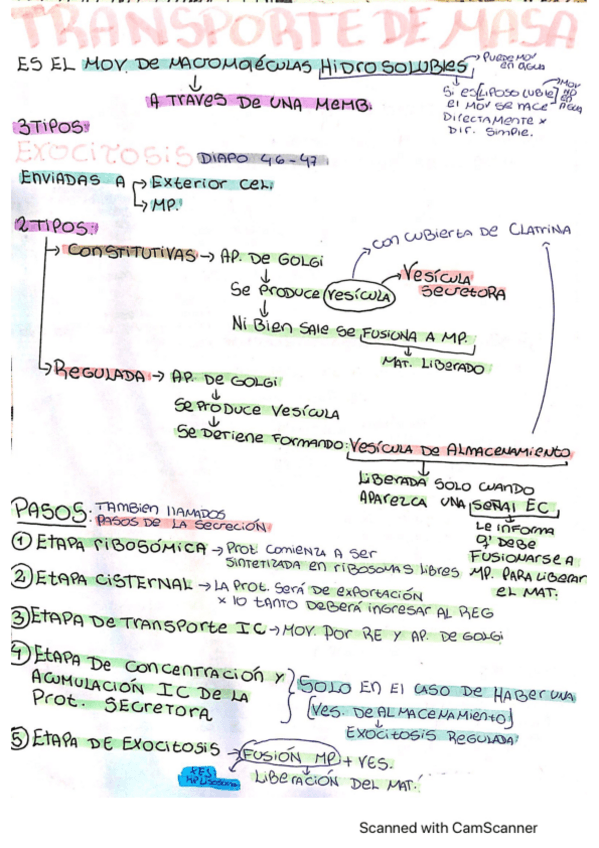 TRANSPORTE DE MASA
ES EL MOV. DE MACROMOLÉCULAS HIDROSOLUBLES → PUEDE MOV EN AGUA
A TRAVES DE UNA MEMB.
Si es [LIPOSOLUBLE] → MOV EN AGUA
el MOV SE HACE
DIRECTAMENTE x
DIF. SIMPLE.
3 TIPOS:
EXOCITOSIS DIAPO 46-47:
ENVIADAS A → Exterior cel.
→ MP.
2 TIPOS:
con cubierta de CLATRINA
→ CONSTITUTIVAS → AP. DE GOLGI
Se produce VESÍCULA → VESÍCULA SECRETORA
Ni Bien sale se FUSIONA A MP.
MAT. LIBERADO
→ REGULADA → AP. DE GOLGI
Se PRODUCE VESÍCULA
Se DETIENE FORMANDO: VESÍCULA DE ALMACENAMIENTO
LIBERADA SOLO CUANDO
APAREZCA UNA SEÑAl EC
LE INFORMA
q' DEBE
FUSIONARSE A
MP. PARA LIBERAR
EL MAT.
PASOS: TAMBIEN llAMADOS
PASOS DE LA SECRECIÓN
① ETAPA RIBOSÓMICA → Prot. comienza A ser
SINTETIZADA EN RIBOSOMAS LIBRES
② ETAPA CISTERNAL → LA Prot. SERÁ DE EXPORTACIÓN
x lo tanto DEBERÁ INGRESAR AL REG
③ ETAPA DE TRANSPORTE IC → MOV. Por RE Y AP. DE GOLGI
④ ETAPA DE CONCENTRACIÓN Y
ACUMULACIÓN IC DE LA
Prot. SECRETORA
SOLO EN El CASO DE HABER UNA
[VES. DE ALMACENAMIENTO]
EXOCITOSIS REGULADA
⑤ ETAPA DE EXOCITOSIS → FUSIÓN MP + VES.
LIBERACIÓN DEL MAT.
Scanned with CamScanner